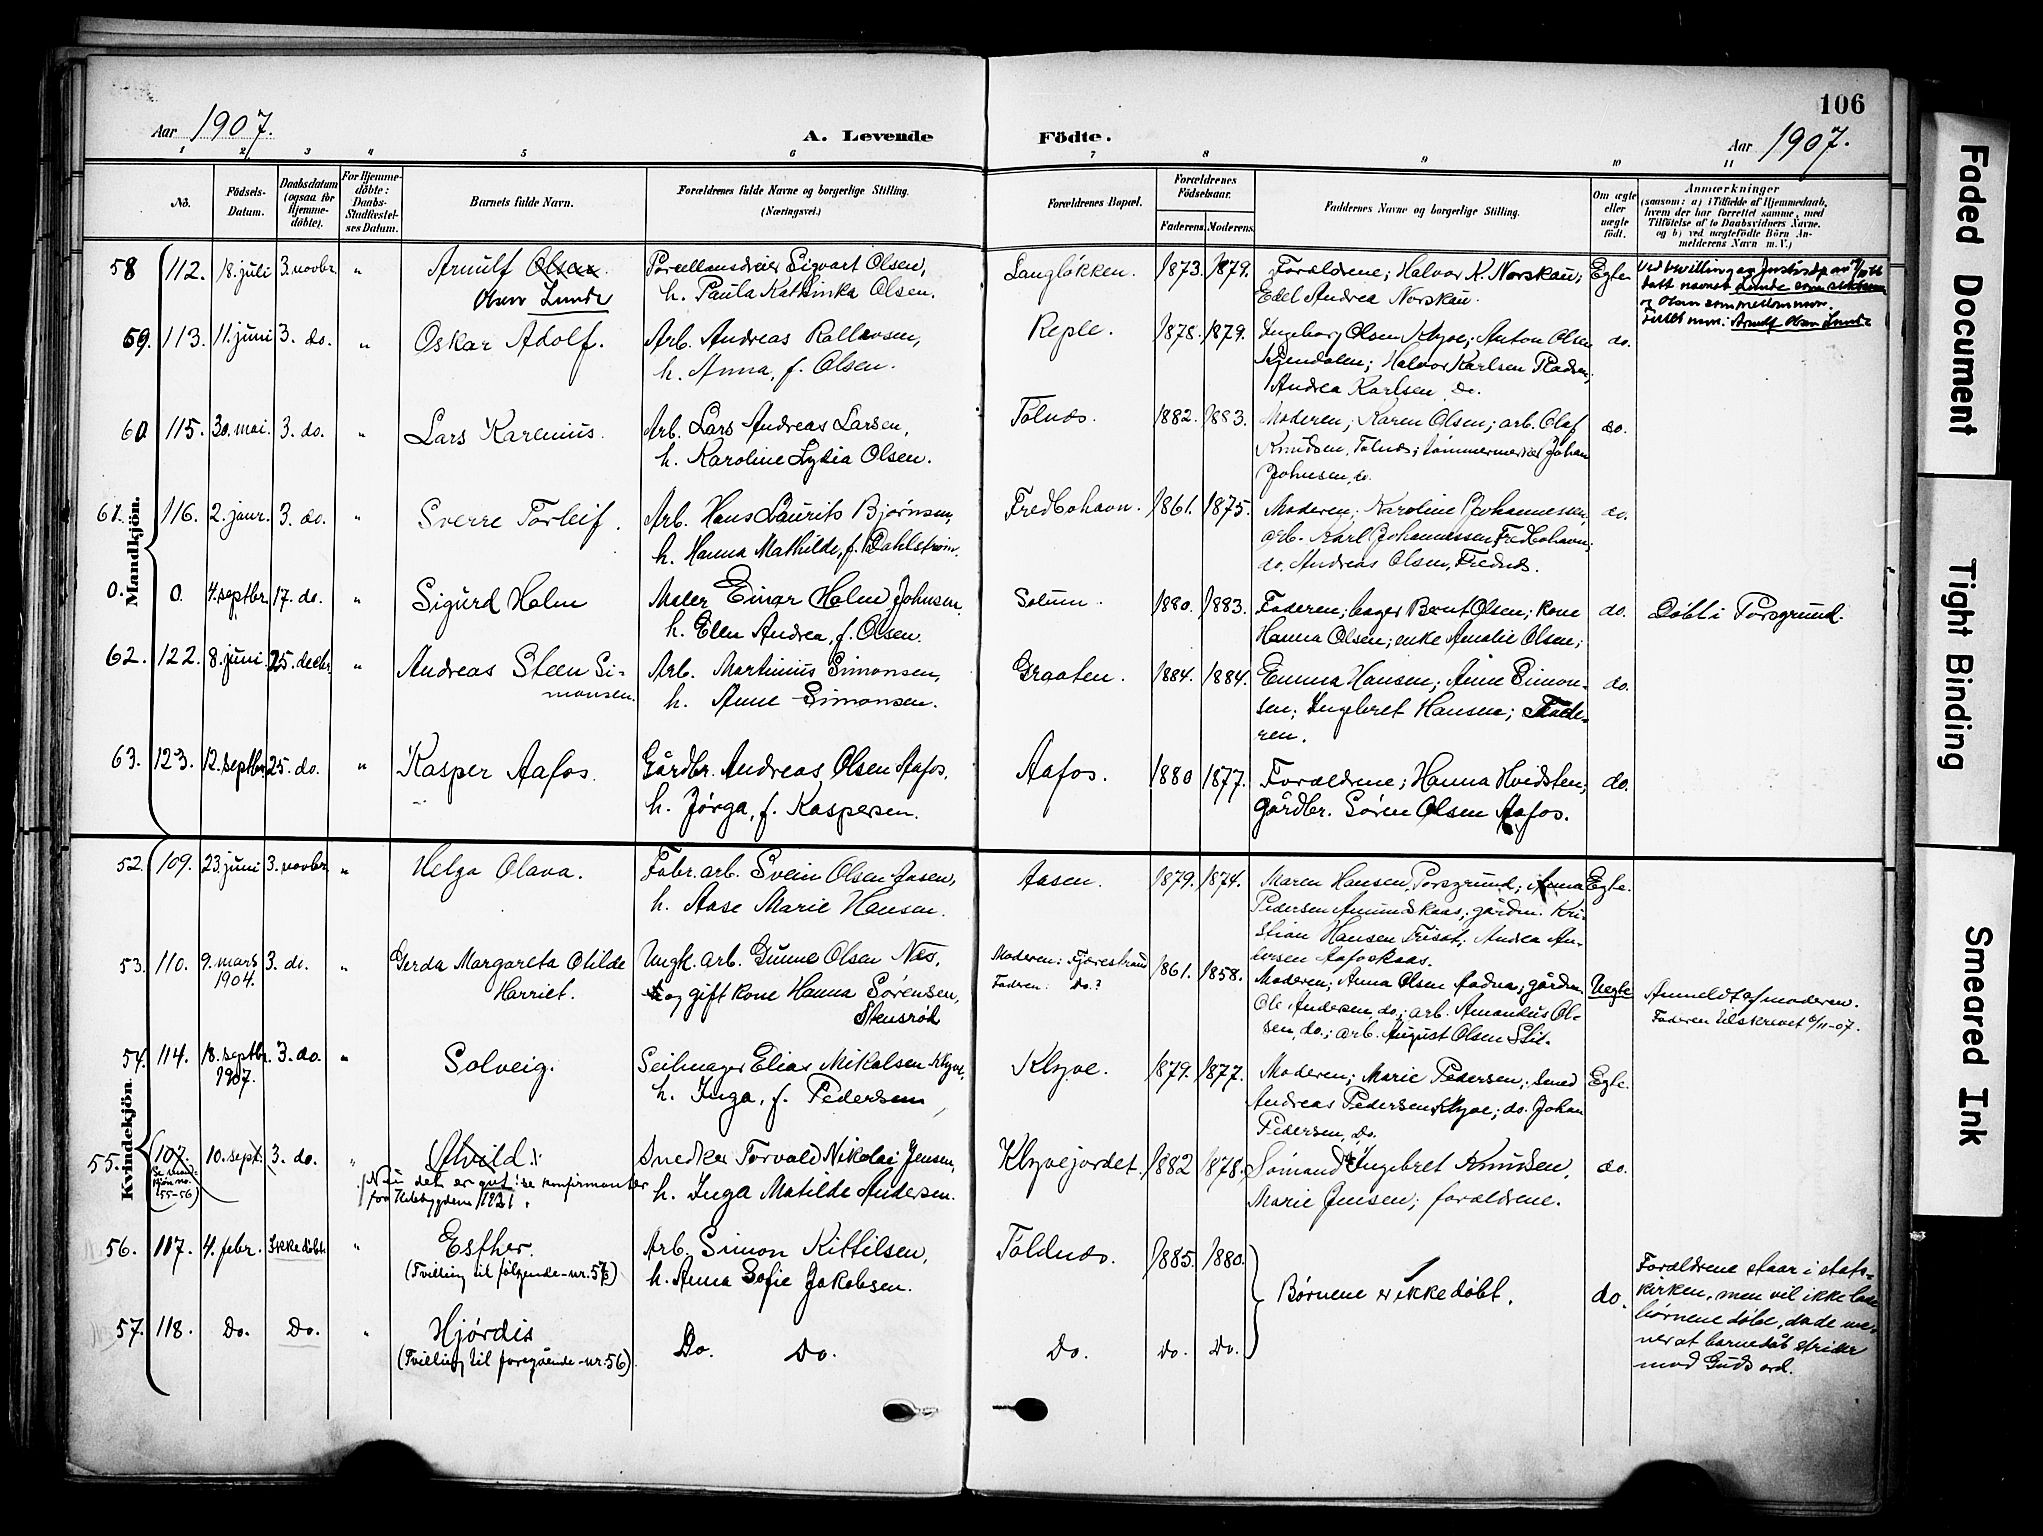 106
Aar 1907.
A. Levende
Födte.
Aar 1907.
1 2 3 4 5 6 7 8 9 10 11
No.
Födsels-
Datum.
Daabsdatum
(ogsaa for
Hjemme-
döbte).
For Hjemme-
döbte:
Daabs-
Stadfæstel-
ses Datum.
Barnets fulde Navn.
Forældrenes fulde Navne og borgerlige Stilling.
(Næringsvei.)
Forældrenes Bopæl.
Forældrenes
Födselsaar.
Faderens.
Moderens.
Faddernes Navne og borgerlige Stilling.
Om ægte
eller
uægte
födt.
Anmærkninger
(saasom: a) i Tilfælde af Hjemmedaab,
hvem der har forrettet samme, med
Tilföielse af to Daabsvidners Navne.
og b) ved uægtefödte Börn An-
melderens Navn m. V.)
Mandkjön.
58 112. 18. juli 3. novbr. " Arnulf Olsen.
Olsen Lunde
Porcellænsdreier Sigvart Olsen,
h. Paula Kathinka Olsen.
Langløkken. 1873. 1879.
Forældrene; Halvor K. Norskau;
Edel Andrea Norskau.
Egte
tatt navnet Lunde som
og Olsen som mellomnavn.
Fullt navn: Arnulf Olsen Lunde
59. 113. 11. juni 3. do. " Oskar Adolf.
Arb. Andreas Rollavsen,
h. Anna, f. Olsen.
Reple. 1878. 1879.
Ingeborg Olsen Klyve; Anton Olsen
Halvor Karlsen
Andrea Karlsen, do.
do.
60 115. 30. mai. 3. do. " Lars Karenius.
Arb. Lars Andreas Larsen,
h. Karoline Lydia Olsen.
Tolnæs. 1882. 1883.
Moderen; Karen Olsen; arb. Olaf
Knudsen, Tolnæs; tømmermester Johan
Johnsen, do.
do.
61. 116. 2. janr. 3. do. " Sverre Torleif.
Arb. Hans Laurits Bjørnsen,
h. Hanna Mathilde, f. Dahlstrøm.
Fredbohavn. 1861. 1875.
Moderen; Karoline Johannessen,
arb. Karl Johannessen Fredbohavn;
do. Andreas Olsen, Frednæs.
do.
0. 0. 4. septbr. 17. do. " Sigurd Holm
Maler Einar Holm Johnsen,
h. Ellen Andrea, f. Olsen.
Solum. 1880. 1883.
Faderen; bager Bernt Olsen; kone
Hanna Olsen; enke Amalie Olsen;
do. Døbt i Porsgrund.
62. 122. 8. juni. 25. decbr. " Andreas Steen Si-
monsen.
Arb. Martinius Simonsen,
h. Anne Simonsen.
Graaten. 1884. 1884.
Emma Hansen; Anne Simon-
sen; Ingebret Hansen; Fade-
ren.
do.
63. 123. 12. septbr. 25. do. " Kasper Aafos.
Gårdbr. Andreas Olsen Aafos,
h. Jørga, f. Kaspersen.
Aafos. 1880 1877.
Forældrene; Hanna Hvidsten;
gårdbr. Søren Olsen Aafos.
do.
Kvindekjön.
52. 109. 23. juni 3. novbr. " Helga Olava.
Fabr. arb. Svein Olsen Aasen,
h. Aase Marie Hansen.
Aasen. 1879. 1874.
Maren Hansen, Porsgrund; Anna
Pedersen Amundskaas; gårdm. Kri-
stian Hansen Andrea An-
dersen Aafoskaas.
Egte.
53. 110. 9. mars
1904.
3. do. " Gerda Margareta Otilde
Harriet.
Ungk. arb. Gunne Olsen Næs,
og gift kone Hanna Sørensen,
Stensrød
Moderen: Fjærestrand
Faderen: Do.?
1861. 1858.
Moderen; Anna Olsen gårdm.
Ole Andersen, do.; arb. Amandus Ol-
sen, do.; arb. August Olsen
Uegte
Anmeldt af moderen.
Faderen tilskrevet 6/11-07.
54. 114. 18. septbr.
1907.
3. do. " Solveig.
Seilmager Elias Mikalsen Klyve,
h. Inga, f. Pedersen
Klyve. 1879. 1877.
Moderen; Marie Pedersen; smed
Andreas Pedersen Klyve; do. Johan
Pedersen, Do.
Egte.
55. 107. 10. sept. 3. do. " Alvild.
(Se mand-
kjøn no.
55-56)
Nei det er gut! se konfirmanter
fra Hedebygdene 1921.
Snedker Torvald Nikolai Jensen,
h. Inga Matilde Andersen.
Klyvejordet. 1882 1878.
Sømand Ingebret Knudsen,
Marie Jensen; forældrene.
do.
56. 117. 4. febr. Ikke døbt. " Esther.
(Tvilling til følgende-nr. 57)
Arb. Simon Kittilsen,
h. Anna Sofie Jakobsen.
Toldnæs. 1885. 1880.
Børnene er ikke døbt.
do.
Forældrene staar i stats-
kirken, men vil ikke lade
børnene døbe, da de me-
ner at barnedåb strider
mod Guds ord.
57. 118. Do. Do. " Hjørdis
(Tvilling til foregående-nr. 56)
Do. Do.
Do. Do. Do.
Faded Document
Tight Binding
Smeared Ink